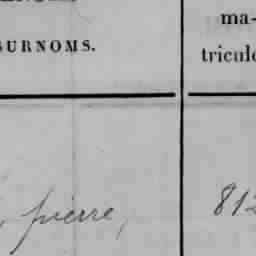 SURNOMS.
ma-
tricule
pierre,
812